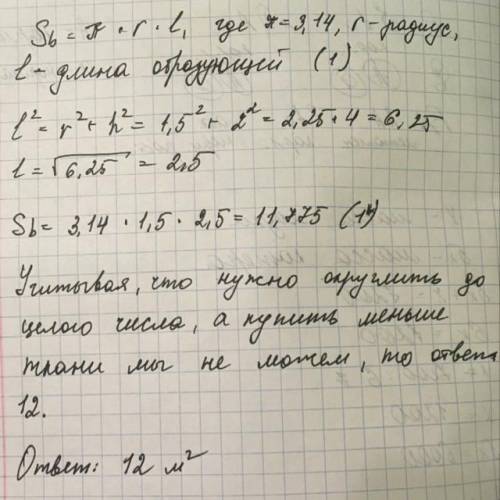 Sb = π · r · l, где π = 3,14, r – радиус,
l – длина образующей (1)
l² = r² + h² = 1,5² + 2² = 2,25 + 4 = 6,25
l = √6,25 = 2,5
Sb = 3,14 · 1,5 · 2,5 = 11,775
Учитывая, что нужно округлить до
целого числа, а купить меньше
ткани мы не можем, то ответ
12.
Ответ: 12 м²